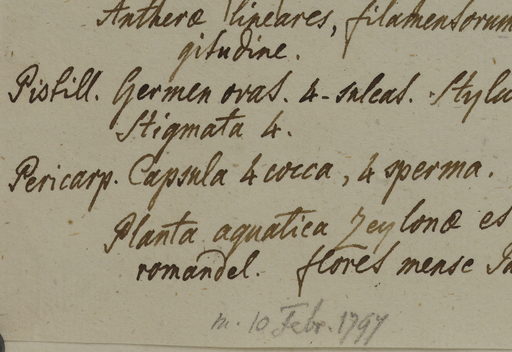 Antheræ lineares, filamentorum
gitudine.
Pistill. Germen ovat. 4-sulcat. Stylu
Stigmata 4.
Pericarp. Capsula 4 cocca, 4 sperma.
Planta aquatica Zeylonæ es
romandel. flores mense Ja
m. 10 Febr. 1797